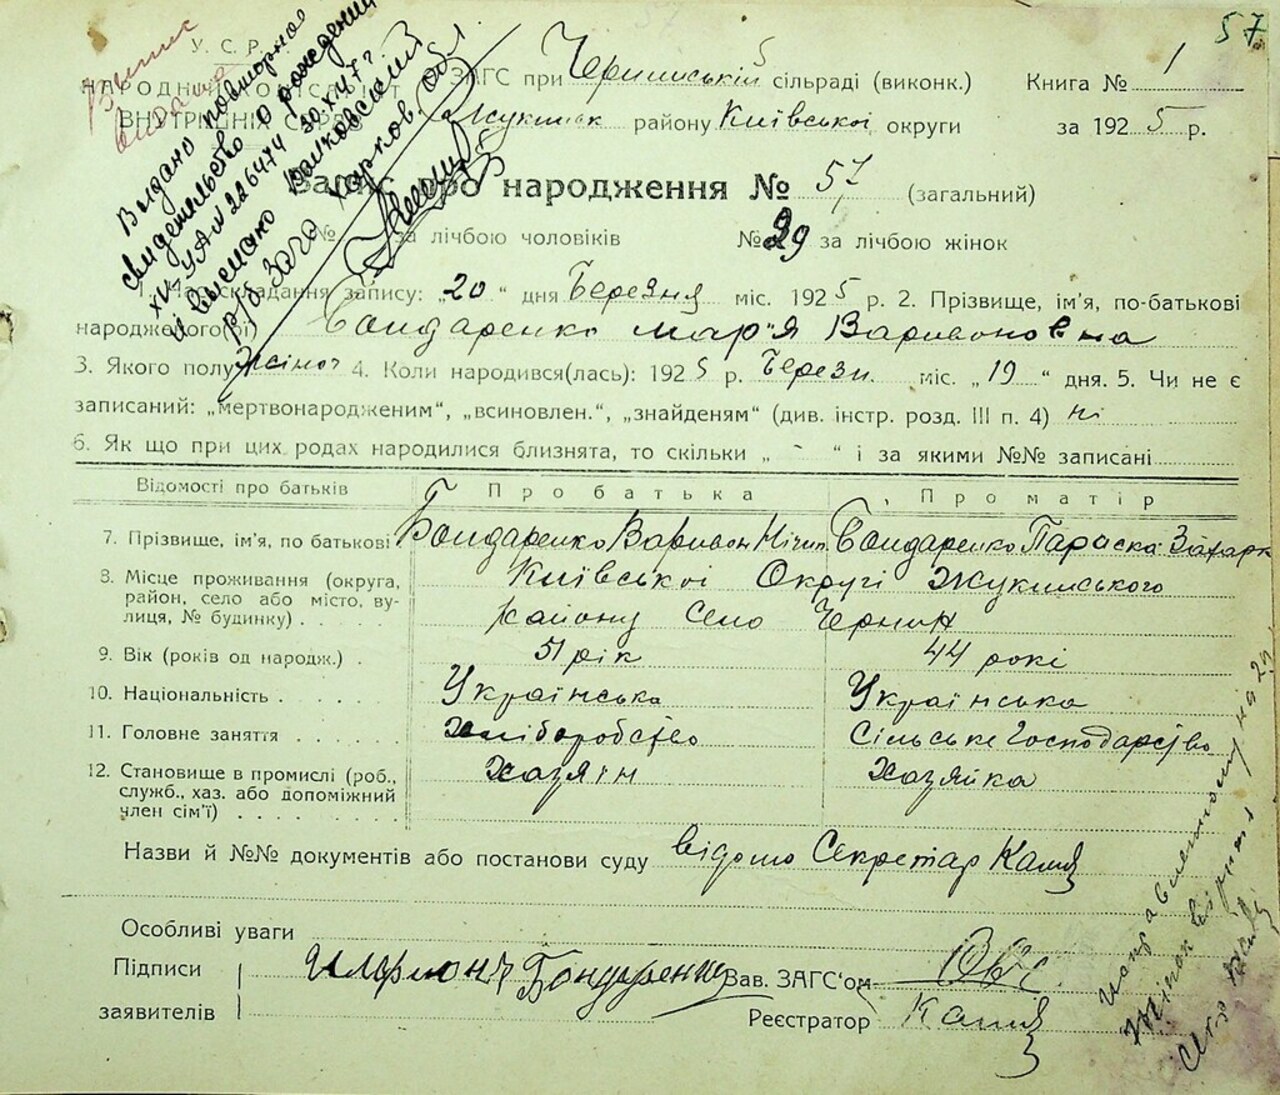 57
У. С. Р.
НАРОДНІЙ КОМІСАРІЯТ
ВНУТРІШНІХ СПРАВ
Выдано повторное
свидетельство о рождении
УА № 226474 30.X.47 г
и выслано Волковский
р/б Загс Харков. обл
ЗАГС при Чернинській сільраді (виконк.) Книга № 1
Жукинск району Київської округи за 1925 р.
Запис про народження № 57 (загальний)
№ за лічбою чоловіків № 29 за лічбою жінок
1. Час складання запису: „20“ дня Березня міс. 1925 р. 2. Прізвище, ім'я, по-батькові
народженого(ої) Бондаренко Мар'я Варивоновна
3. Якого полу жіноч 4. Коли народився(лась): 1925 р. Березн. міс. „19“ дня. 5. Чи не є
записаний: „мертвонародженим“, „всиновлен.“, „знайденям“ (див. інстр. розд. III п. 4) ні
6. Як що при цих родах народилися близнята, то скільки „ - “ і за якими №№ записані
Відомості про батьків Про батька Про матір
7. Прізвище, ім'я, по батькові Бондаренко Варивон Нічип. Бондаренко Параска Захарк
8. Місце проживання (округа, район, село або місто, вулиця, № будинку) Київської Округі Жукинського
району Село Чернин
9. Вік (років од народж.) 51 рік 44 рокі
10. Національність Українська Українська
11. Головне заняття Хліборобство Сільське Господарство
12. Становище в промислі (роб., Хазяїн Хазяйка
служб., хаз. або допоміжний
член сім'ї)
Назви й №№ документів або постанови суду відомо Секретар
Особливі уваги
Підписи Бондаренко Зав. ЗАГС'ом
заявителів Реєстратор